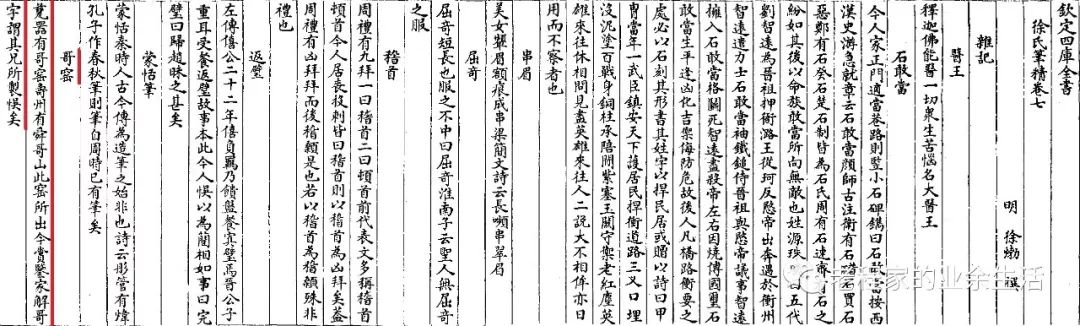 欽定四庫全書
徐氏筆精卷七
明 徐𤊹 撰
雜記
醫王
釋迦佛能醫一切衆生苦惱名大醫王
石敢當
今人家正門適當巷路則竪小石碑鐫曰石敢當按西
漢史游急就章云石敢當顔師古注衛有石碏石買石
惡鄭有石癸石楚石制皆為石氏周有石速齊有石之
紛如其後以命族敢當所向無敵也姓源珠曰五代
劉智遠為晉祖押衙潞王從珂反愍帝出奔遇於衛州
智遠遣力士石敢當袖鐵鎚侍晉祖與愍帝議事智遠
擁入石敢當格鬭死智遠盡殺帝左右因燒傳國璽石
敢當生平逢凶化吉禦侮防危故後人凡橋路衝要之
處必以石刻其形書其姓字以捍民居或贈以詩曰甲
胄當年一武臣鎮安天下護居民捍衛道路三叉口埋
沒泥塗百戰身銅柱承陪間紫塞玉關守禦老紅塵英
雄來往休相問見盡英雄來往人二說大不相侔亦日
用而不察者也
串眉
美女顰眉額痕成串梁簡文詩云長顰串翠眉
屈奇
屈奇短長也服之不中曰屈奇淮南子云聖人無屈奇
之服
稽首
周禮有九拜一曰稽首二曰頓首前代表文多稱稽首
頓首今人居喪投刺皆曰稽首則以稽首為凶拜矣蓋
周禮有凶拜拜而後稽顙是也若以稽首為稽顙殊非
禮也
返璧
左傳僖公二十二年僖負羈乃饋盤餐寘璧焉晉公子
重耳受餐返璧故事本此今人悮以為藺相如事曰完
璧曰歸趙昧之甚矣
蒙恬筆
蒙恬秦時人古今傳為造筆之始非也詩云彤管有煒
孔子作春秋筆則筆自周時已有筆矣
哥窑
甆器有哥窑壽州有舜哥山此窑所出今賞鑒家解哥
字謂其兄所製悮矣
老程家的业余生活